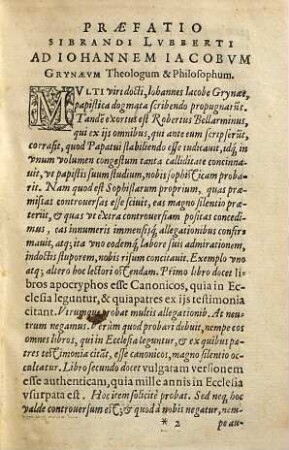 PRÆFATIO
SIBRANDI LVBBERTI
AD IOHANNEM IACOBVM
GRYNÆVM Theologum & Philosophum.
MVLTI viri docti, Iohannes Iacobe Grynæe,
papistica dogmata scribendo propugnarūt.
Tandē exortus est Robertus Bellarminus,
qui ex ijs omnibus, qui ante eum scripserūt,
corrasit, quod Papatui stabiliendo esse iudicauit, idq́; in
vnum volumen congestum tanta calliditate concinna-
uit, ve papistis suum studium, nobis sophisticam probarit.
Nam quod est Sophistarum proprium, quas præ-
mistas controuersas esse sciuit, eas magno silentio præ-
teriret, & quas ve extra controuersiam positas concedimus,
eas innumeris immensisq́; allegationibus confir-
mauit, atq; ita vno eodemq́; labore suis admirationem,
indoctis stuporem, nobis risum concitauit. Exemplo v-
no atq; altero hoc lectori ostendam. Primo libro docet li-
bros apocryphos esse Canonicos, quia in Ec-
clesia leguntur, & quia patres ex ijs testimonia
citant. Vtrumque probat multis allegationib. At neu-
trum negamus. Verum quod probari dibuit, nempe eos
omnes libros, qui in Ecclesia leguntur, & ex quibus pa-
tres testimonia citāt, esse canonicos, magno silentio oc-
cultatur. Libro secundo docet vulgatam versionem
esse authenticam, quia mille annis in Ecclesia
vsurpata est. Hoc iterum solicitè probat. Sed neq, hoc
valde controuersum est; & quod à nobis negatur, nem-
* 2 pe au-